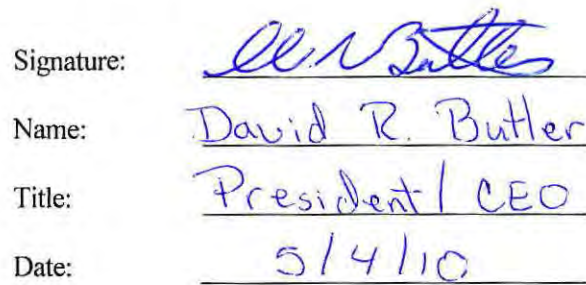 Signature: Butler
Name: David R. Butler
Title: President / CEO
Date: 5/4/10